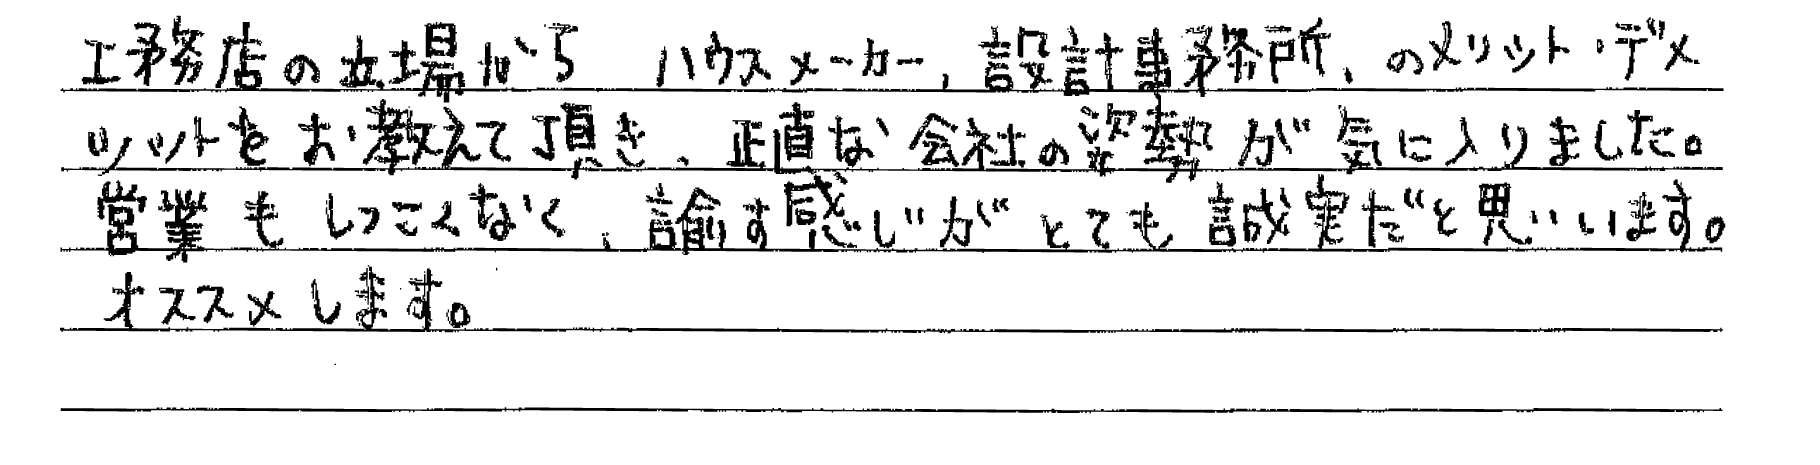 工務店の立場から ハウスメーカー、設計事務所、のメリット・デメ
リットをお教えて頂き、正直な会社の姿勢が気に入りました。
営業もしつこくなく、諭す感じがとても誠実だと思います。
オススメします。